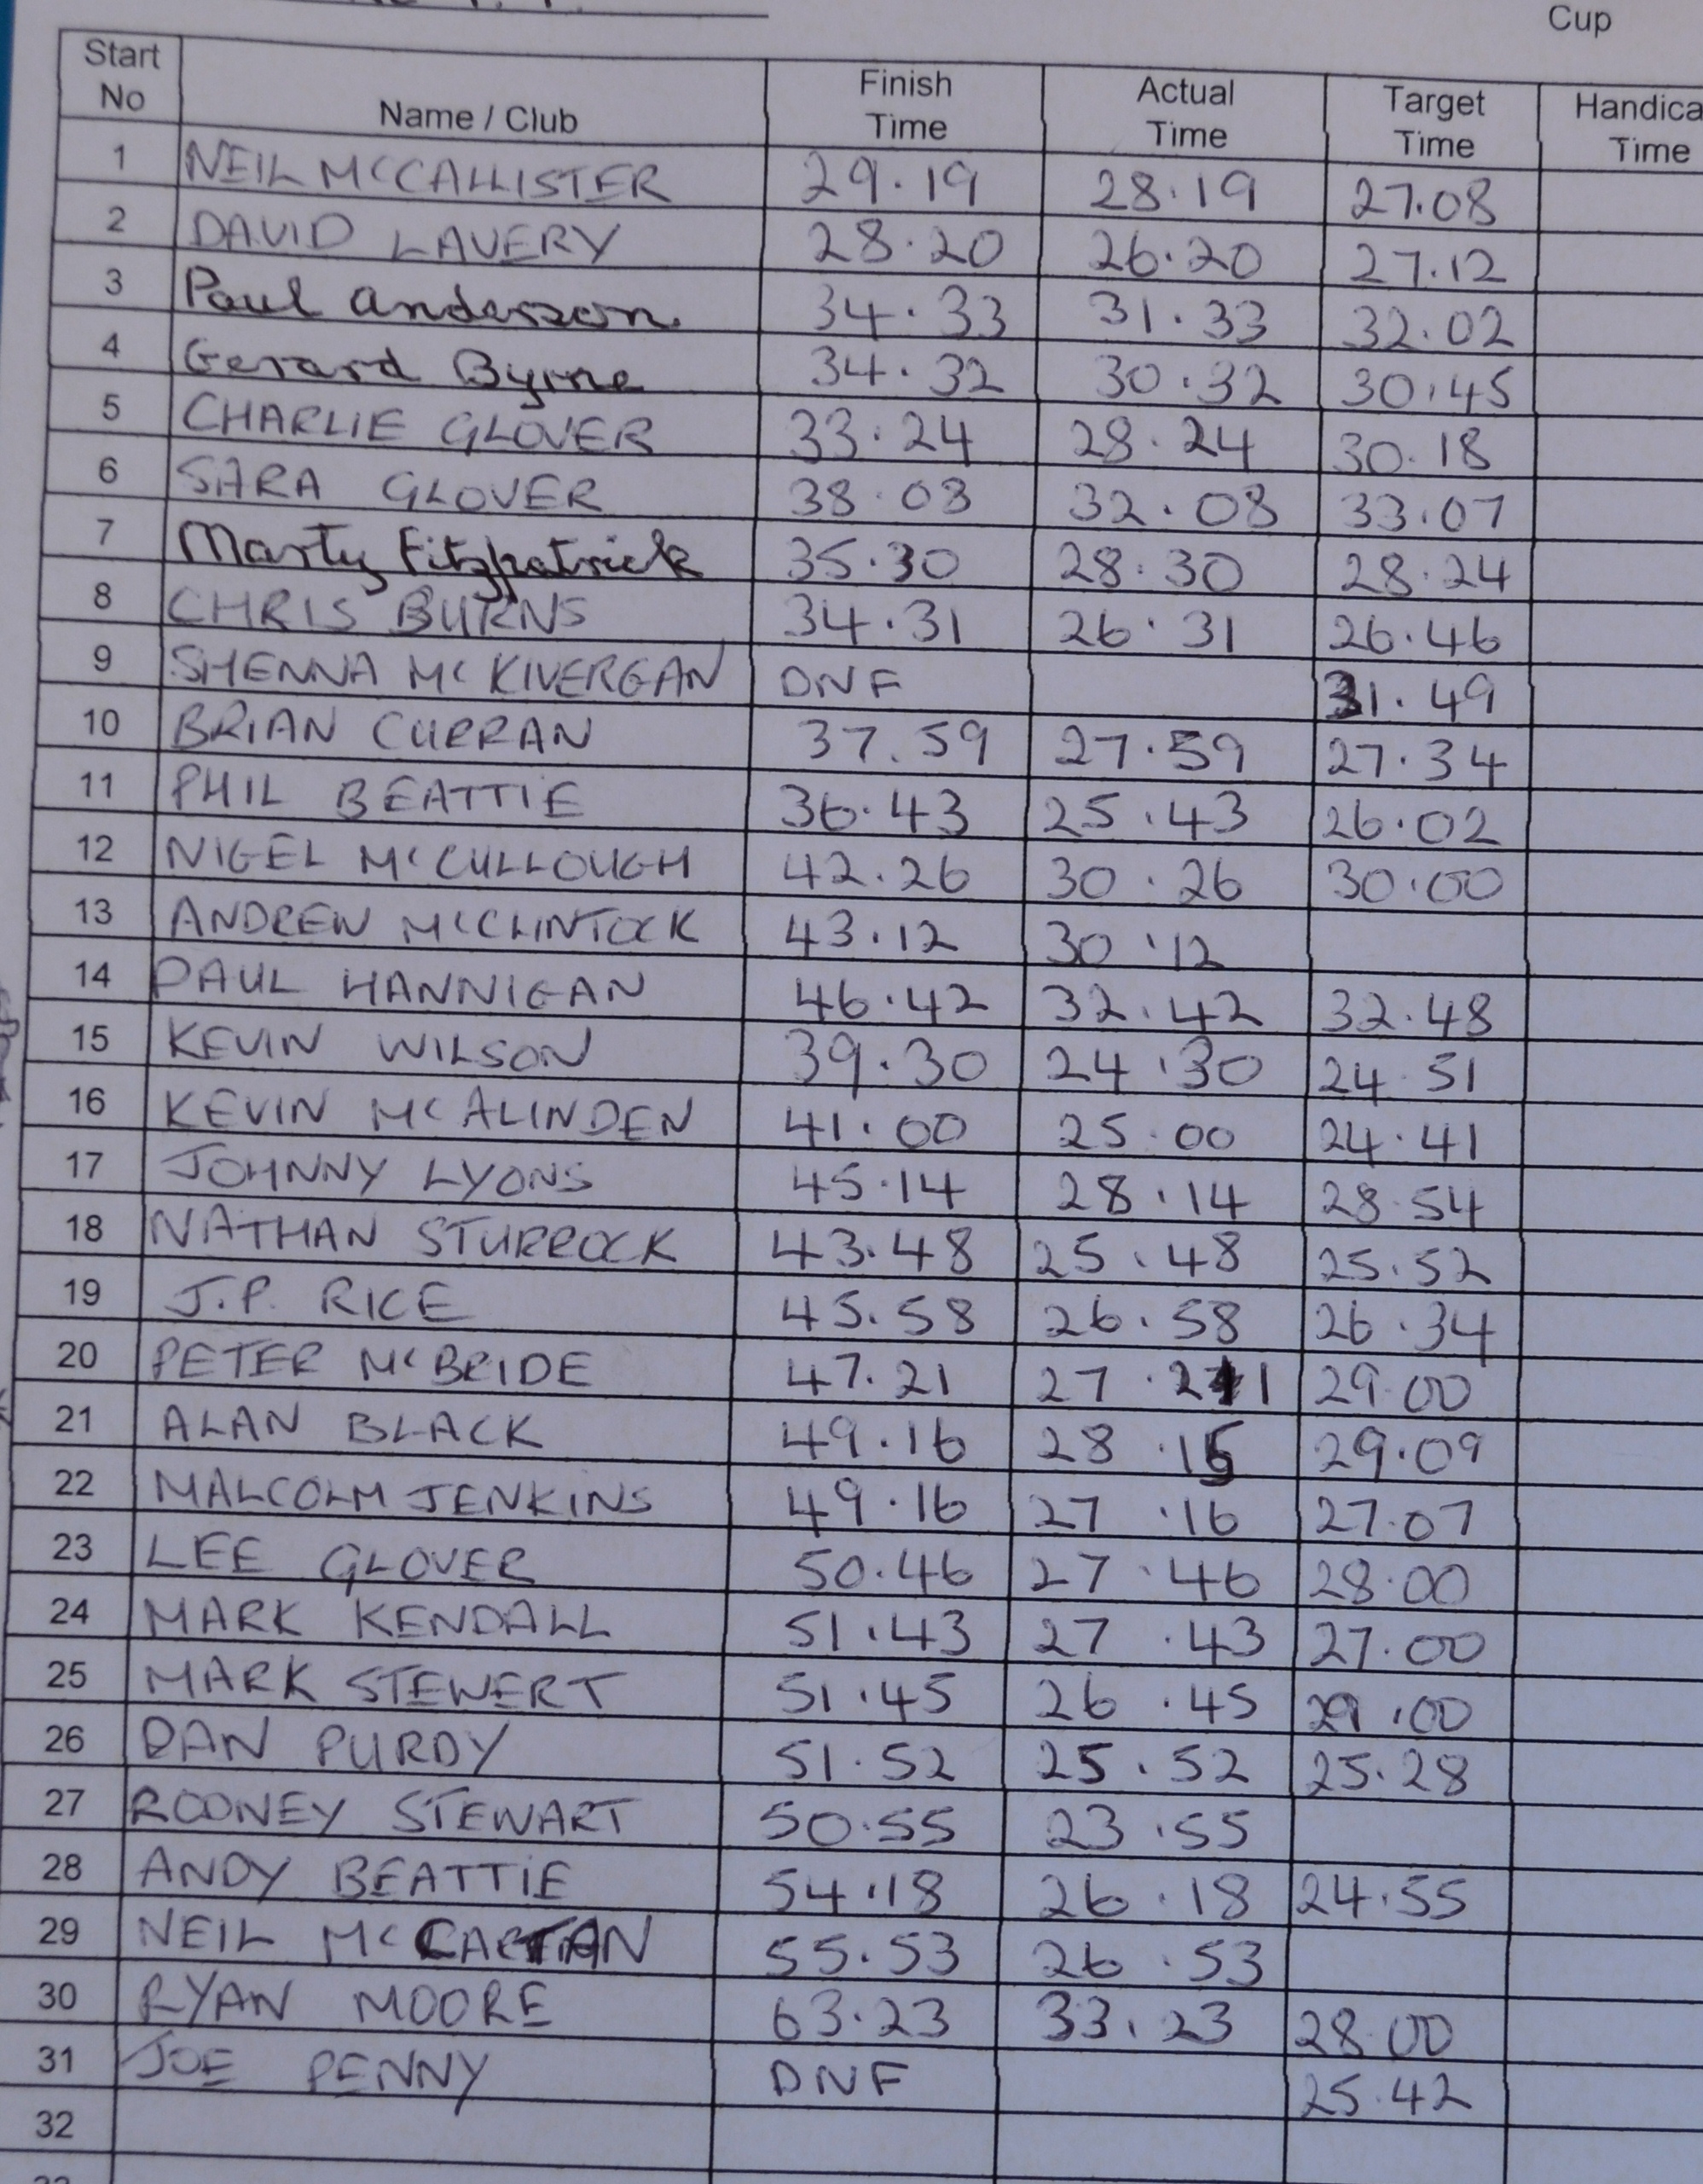 Cup
Start No Name / Club Finish Time Actual Time Target Time Handica Time
1 NEIL MCCALLISTER 29.19 28.19 27.08
2 DAVID LAVERY 28.20 26.20 27.12
3 Paul Anderson 34.33 31.33 32.02
4 Gerard Byrne 34.32 30.32 30.45
5 CHARLIE GLOVER 33.24 28.24 30.18
6 SARA GLOVER 38.08 32.08 33.07
7 Marty Fitzpatrick 35.30 28.30 28.24
8 CHRIS BURNS 34.31 26.31 26.46
9 SHENNA MCKIVERGAN DNF 31.49
10 BRIAN CURRAN 37.59 27.59 27.34
11 PHIL BEATTIE 36.43 25.43 26.02
12 NIGEL MCCULLOUGH 42.26 30.26 30.00
13 ANDREW MCCLINTOCK 43.12 30.12
14 PAUL HANNIGAN 46.42 32.42 32.48
15 KEVIN WILSON 39.30 24.30 24.51
16 KEVIN MCALINDEN 41.00 25.00 24.41
17 JOHNNY LYONS 45.14 28.14 28.54
18 NATHAN STURROCK 43.48 25.48 25.52
19 J.P. RICE 45.58 26.58 26.34
20 PETER MCBRIDE 47.21 27.21 29.00
21 ALAN BLACK 49.16 28 29.09
22 MALCOLM JENKINS 49.16 27.16 27.07
23 LEE GLOVER 50.46 27.46 28.00
24 MARK KENDALL 51.43 27.43 27.00
25 MARK STEWERT 51.45 26.45 29.00
26 DAN PURDY 51.52 25.52 25.28
27 RODNEY STEWART 50.55 23.55
28 ANDY BEATTIE 54.18 26.18 24.55
29 NEIL MCCARTAN 55.53 26.53
30 RYAN MOORE 63.23 33.23 28.00
31 JOE PENNY DNF 25.42
32